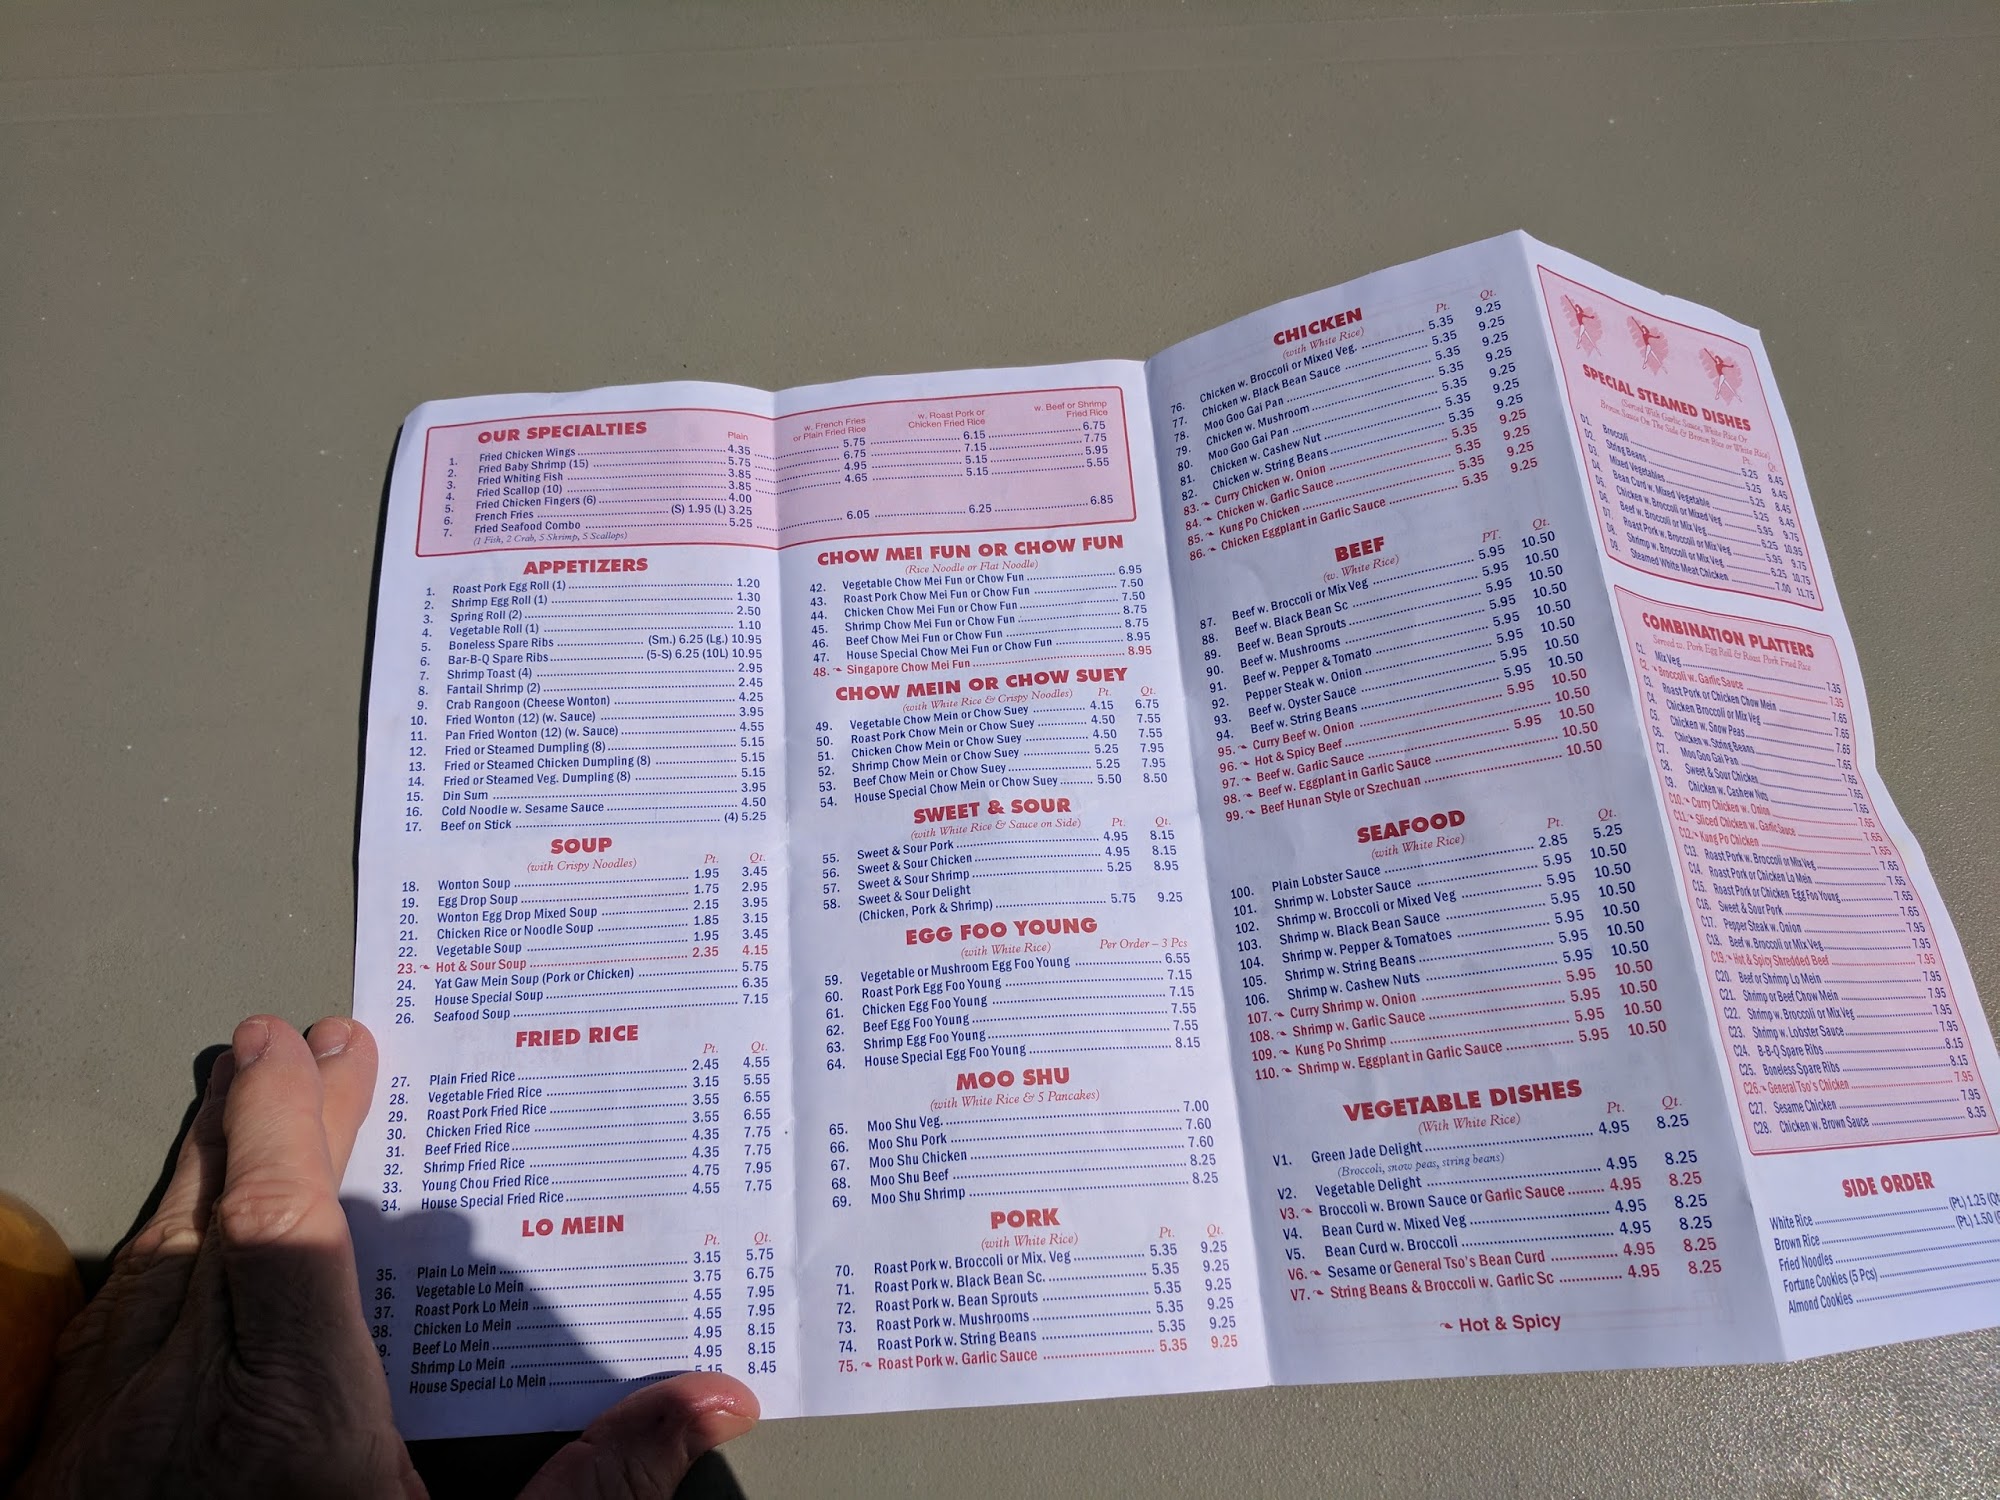 OUR SPECIALTIES
Plain
w. French Fries or Plain Fried Rice
w. Roast Pork or Chicken Fried Rice
w. Beef or Shrimp Fried Rice
1. Fried Chicken Wings 4.35 5.75 6.15 6.75
2. Fried Baby Shrimp (15) 5.75 6.75 7.15 7.75
3. Fried Whiting Fish 3.85 4.95 5.15 5.95
4. Fried Scallop (10) 3.85 4.65 5.15 5.55
5. Fried Chicken Fingers (6) 4.00
6. French Fries (S) 1.95 (L) 3.25
7. Fried Seafood Combo 5.25 6.05 6.25 6.85
(1 Fish, 2 Crab, 5 Shrimp, 5 Scallops)
APPETIZERS
1. Roast Pork Egg Roll (1) 1.20
2. Shrimp Egg Roll (1) 1.30
3. Spring Roll (2) 2.50
4. Vegetable Roll (1) 1.10
5. Boneless Spare Ribs (Sm.) 6.25 (Lg.) 10.95
6. Bar-B-Q Spare Ribs (5-S) 6.25 (10L) 10.95
7. Shrimp Toast (4) 2.95
8. Fantail Shrimp (2) 2.45
9. Crab Rangoon (Cheese Wonton) 4.25
10. Fried Wonton (12) (w. Sauce) 3.95
11. Pan Fried Wonton (12) (w. Sauce) 4.55
12. Fried or Steamed Dumpling (8) 5.15
13. Fried or Steamed Chicken Dumpling (8) 5.15
14. Fried or Steamed Veg. Dumpling (8) 5.15
15. Din Sum 3.95
16. Cold Noodle w. Sesame Sauce 4.50
17. Beef on Stick (4) 5.25
SOUP
(with Crispy Noodles) Pt. Qt.
18. Wonton Soup 1.95 3.45
19. Egg Drop Soup 1.75 2.95
20. Wonton Egg Drop Mixed Soup 2.15 3.95
21. Chicken Rice or Noodle Soup 1.85 3.15
22. Vegetable Soup 1.95 3.45
23. Hot & Sour Soup 2.35 4.15
24. Yat Gaw Mein Soup (Pork or Chicken) 5.75
25. House Special Soup 6.35
26. Seafood Soup 7.15
FRIED RICE
Pt. Qt.
27. Plain Fried Rice 2.45 4.55
28. Vegetable Fried Rice 3.15 5.55
29. Roast Pork Fried Rice 3.55 6.55
30. Chicken Fried Rice 3.55 6.55
31. Beef Fried Rice 4.35 7.75
32. Shrimp Fried Rice 4.35 7.75
33. Young Chou Fried Rice 4.75 7.95
34. House Special Fried Rice 4.55 7.75
LO MEIN
Pt. Qt.
35. Plain Lo Mein 3.15 5.75
36. Vegetable Lo Mein 3.75 6.75
37. Roast Pork Lo Mein 4.55 7.95
38. Chicken Lo Mein 4.55 7.95
9. Beef Lo Mein 4.95 8.15
Shrimp Lo Mein 4.95 8.15
House Special Lo Mein 5.15 8.45
CHOW MEI FUN OR CHOW FUN
(Rice Noodle or Flat Noodle)
42. Vegetable Chow Mei Fun or Chow Fun 6.95
43. Roast Pork Chow Mei Fun or Chow Fun 7.50
44. Chicken Chow Mei Fun or Chow Fun 7.50
45. Shrimp Chow Mei Fun or Chow Fun 8.75
46. Beef Chow Mei Fun or Chow Fun 8.75
47. House Special Chow Mei Fun or Chow Fun 8.95
48. Singapore Chow Mei Fun 8.95
CHOW MEIN OR CHOW SUEY
(with White Rice & Crispy Noodles) Pt. Qt.
49. Vegetable Chow Mein or Chow Suey 4.15 6.75
50. Roast Pork Chow Mein or Chow Suey 4.50 7.55
51. Chicken Chow Mein or Chow Suey 4.50 7.55
52. Shrimp Chow Mein or Chow Suey 5.25 7.95
53. Beef Chow Mein or Chow Suey 5.25 7.95
54. House Special Chow Mein or Chow Suey 5.50 8.50
SWEET & SOUR
(with White Rice & Sauce on Side) Pt. Qt.
55. Sweet & Sour Pork 4.95 8.15
56. Sweet & Sour Chicken 4.95 8.15
57. Sweet & Sour Shrimp 5.25 8.95
58. Sweet & Sour Delight
(Chicken, Pork & Shrimp) 5.75 9.25
EGG FOO YOUNG
(with White Rice) Per Order – 3 Pcs
59. Vegetable or Mushroom Egg Foo Young 6.55
60. Roast Pork Egg Foo Young 7.15
61. Chicken Egg Foo Young 7.15
62. Beef Egg Foo Young 7.55
63. Shrimp Egg Foo Young 7.55
64. House Special Egg Foo Young 8.15
MOO SHU
(with White Rice & 5 Pancakes)
65. Moo Shu Veg. 7.00
66. Moo Shu Pork 7.60
67. Moo Shu Chicken 7.60
68. Moo Shu Beef 8.25
69. Moo Shu Shrimp 8.25
PORK
(with White Rice) Pt. Qt.
70. Roast Pork w. Broccoli or Mix. Veg 5.35 9.25
71. Roast Pork w. Black Bean Sc. 5.35 9.25
72. Roast Pork w. Bean Sprouts 5.35 9.25
73. Roast Pork w. Mushrooms 5.35 9.25
74. Roast Pork w. String Beans 5.35 9.25
75. Roast Pork w. Garlic Sauce 5.35 9.25
CHICKEN
(with White Rice) Pt. Qt.
76. Chicken w. Broccoli or Mixed Veg. 5.35 9.25
77. Chicken w. Black Bean Sauce 5.35 9.25
78. Moo Goo Gai Pan 5.35 9.25
79. Chicken w. Mushroom 5.35 9.25
80. Moo Goo Gai Pan 5.35 9.25
81. Chicken w. Cashew Nut 5.35 9.25
82. Chicken w. String Beans 5.35 9.25
83. Curry Chicken w. Onion 5.35 9.25
84. Chicken w. Garlic Sauce 5.35 9.25
85. Kung Po Chicken 5.35 9.25
86. Chicken Eggplant in Garlic Sauce 5.35 9.25
BEEF
(w. White Rice) PT. Qt.
87. Beef w. Broccoli or Mix Veg 5.95 10.50
88. Beef w. Black Bean Sc 5.95 10.50
89. Beef w. Bean Sprouts 5.95 10.50
90. Beef w. Mushrooms 5.95 10.50
91. Beef w. Pepper & Tomato 5.95 10.50
92. Pepper Steak w. Onion 5.95 10.50
93. Beef w. Oyster Sauce 5.95 10.50
94. Beef w. String Beans 5.95 10.50
95. Curry Beef w. Onion 5.95 10.50
96. Hot & Spicy Beef 10.50
97. Beef w. Garlic Sauce 5.95 10.50
98. Beef w. Eggplant in Garlic Sauce 10.50
99. Beef Hunan Style or Szechuan 10.50
SEAFOOD
(with White Rice) Pt. Qt.
100. Plain Lobster Sauce 2.85 5.25
101. Shrimp w. Lobster Sauce 5.95 10.50
102. Shrimp w. Broccoli or Mixed Veg 5.95 10.50
103. Shrimp w. Black Bean Sauce 5.95 10.50
104. Shrimp w. Pepper & Tomatoes 5.95 10.50
105. Shrimp w. String Beans 5.95 10.50
106. Shrimp w. Cashew Nuts 5.95 10.50
107. Curry Shrimp w. Onion 5.95 10.50
108. Shrimp w. Garlic Sauce 5.95 10.50
109. Kung Po Shrimp 5.95 10.50
110. Shrimp w. Eggplant in Garlic Sauce 5.95 10.50
VEGETABLE DISHES
(With White Rice) Pt. Qt.
V1. Green Jade Delight 4.95 8.25
(Broccoli, snow peas, string beans)
V2. Vegetable Delight 4.95 8.25
V3. Broccoli w. Brown Sauce or Garlic Sauce 4.95 8.25
V4. Bean Curd w. Mixed Veg 4.95 8.25
V5. Bean Curd w. Broccoli 4.95 8.25
V6. Sesame or General Tso's Bean Curd 4.95 8.25
V7. String Beans & Broccoli w. Garlic Sc 4.95 8.25
Hot & Spicy
SPECIAL STEAMED DISHES
(Served With Garlic Sauce, White Rice Or
Brown Sauce On The Side & Brown Rice or White Rice)
Pt. Qt.
D1. Broccoli 5.25 8.45
D2. String Beans 5.25 8.45
D3. Mixed Vegetables 5.25 8.45
D4. Bean Curd w. Mixed Vegetable 5.25 8.45
D5. Chicken w. Broccoli or Mixed Veg 5.95 9.75
D6. Beef w. Broccoli or Mix Veg 5.25 10.95
D7. Roast Pork w. Broccoli or Mix Veg 5.95 9.75
D8. Shrimp w. Broccoli or Mix Veg 6.25 10.75
D9. Steamed White Meat Chicken 7.00 11.75
COMBINATION PLATTERS
Served w. Pork Egg Roll & Roast Pork Fried Rice
C1. Mix Veg 7.35
C2. Broccoli w. Garlic Sauce 7.35
C3. Roast Pork or Chicken Chow Mein 7.65
C4. Chicken Broccoli or Mix Veg 7.65
C5. Chicken w. Snow Peas 7.65
C6. Chicken w. String Beans 7.65
C7. Moo Goo Gai Pan 7.65
C8. Sweet & Sour Chicken 7.65
C9. Chicken w. Cashew Nuts 7.65
C10. Curry Chicken w. Onion 7.65
C11. Sliced Chicken w. Garlic Sauce 7.65
C12. Kung Po Chicken 7.65
C13. Roast Pork w. Broccoli or Mix Veg 7.65
C14. Roast Pork or Chicken Lo Mein 7.65
C15. Roast Pork or Chicken Egg Foo Young 7.65
C16. Sweet & Sour Pork 7.65
C17. Pepper Steak w. Onion 7.95
C18. Beef w. Broccoli or Mix Veg 7.95
C19. Hot & Spicy Shredded Beef 7.95
C20. Beef or Shrimp Lo Mein 7.95
C21. Shrimp or Beef Chow Mein 7.95
C22. Shrimp w. Broccoli or Mix Veg 7.95
C23. Shrimp w. Lobster Sauce 7.95
C24. B-B-Q Spare Ribs 8.15
C25. Boneless Spare Ribs 8.15
C26. General Tso's Chicken 7.95
C27. Sesame Chicken 7.95
C28. Chicken w. Brown Sauce 8.35
SIDE ORDER
White Rice (Pt.) 1.25 (Qt
Brown Rice (Pt.) 1.50
Fried Noodles
Fortune Cookies (5 Pcs)
Almond Cookies